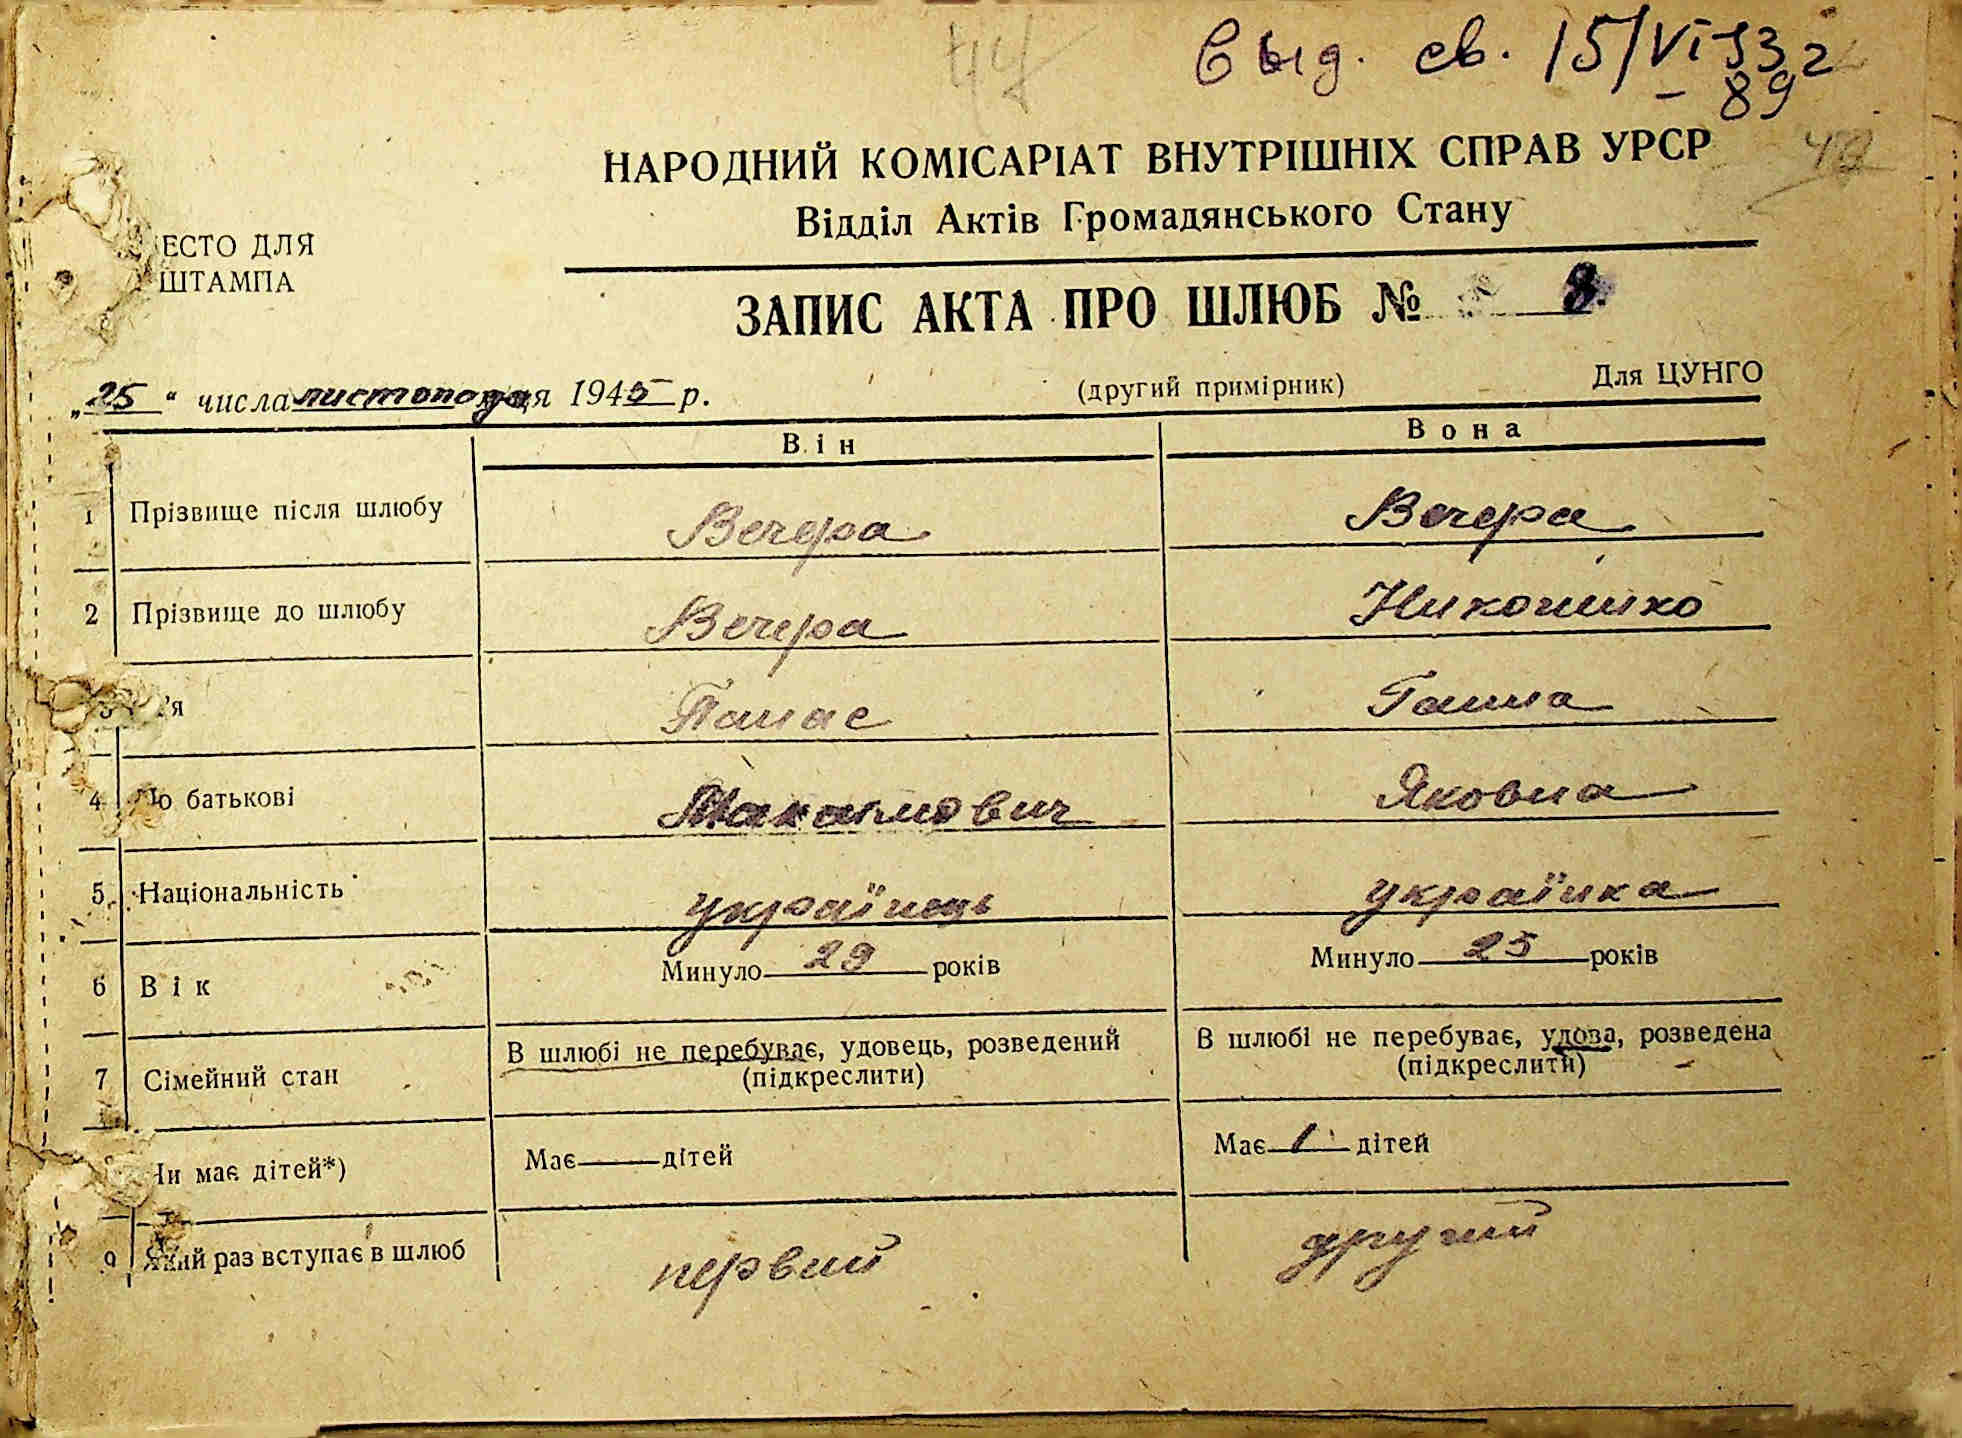 44
Выд. св. 15/VI-53 г
- 89
НАРОДНИЙ КОМІСАРІАТ ВНУТРІШНІХ СПРАВ УРСР
Відділ Актів Громадянського Стану
ЕСТО ДЛЯ
ШТАМПА
ЗАПИС АКТА ПРО ШЛЮБ № 8.
„25“ числа листопада ця 1945 р.
(другий примірник)
Для ЦУНГО
Він Вона
1 Прізвище після шлюбу Вечера Вечера
2 Прізвище до шлюбу Вечера
3 'я Панас Ганна
4 По батькові Макаймович Яковна
5 Національність українець українка
6 Вік Минуло 29 років Минуло 25 років
7 Сімейний стан В шлюбі не перебуває, удовець, розведений В шлюбі не перебуває, удова, розведена
(підкреслити) (підкреслити)
Чи має дітей*) Має — дітей Має 1 дітей
9 Який раз вступає в шлюб первий другий